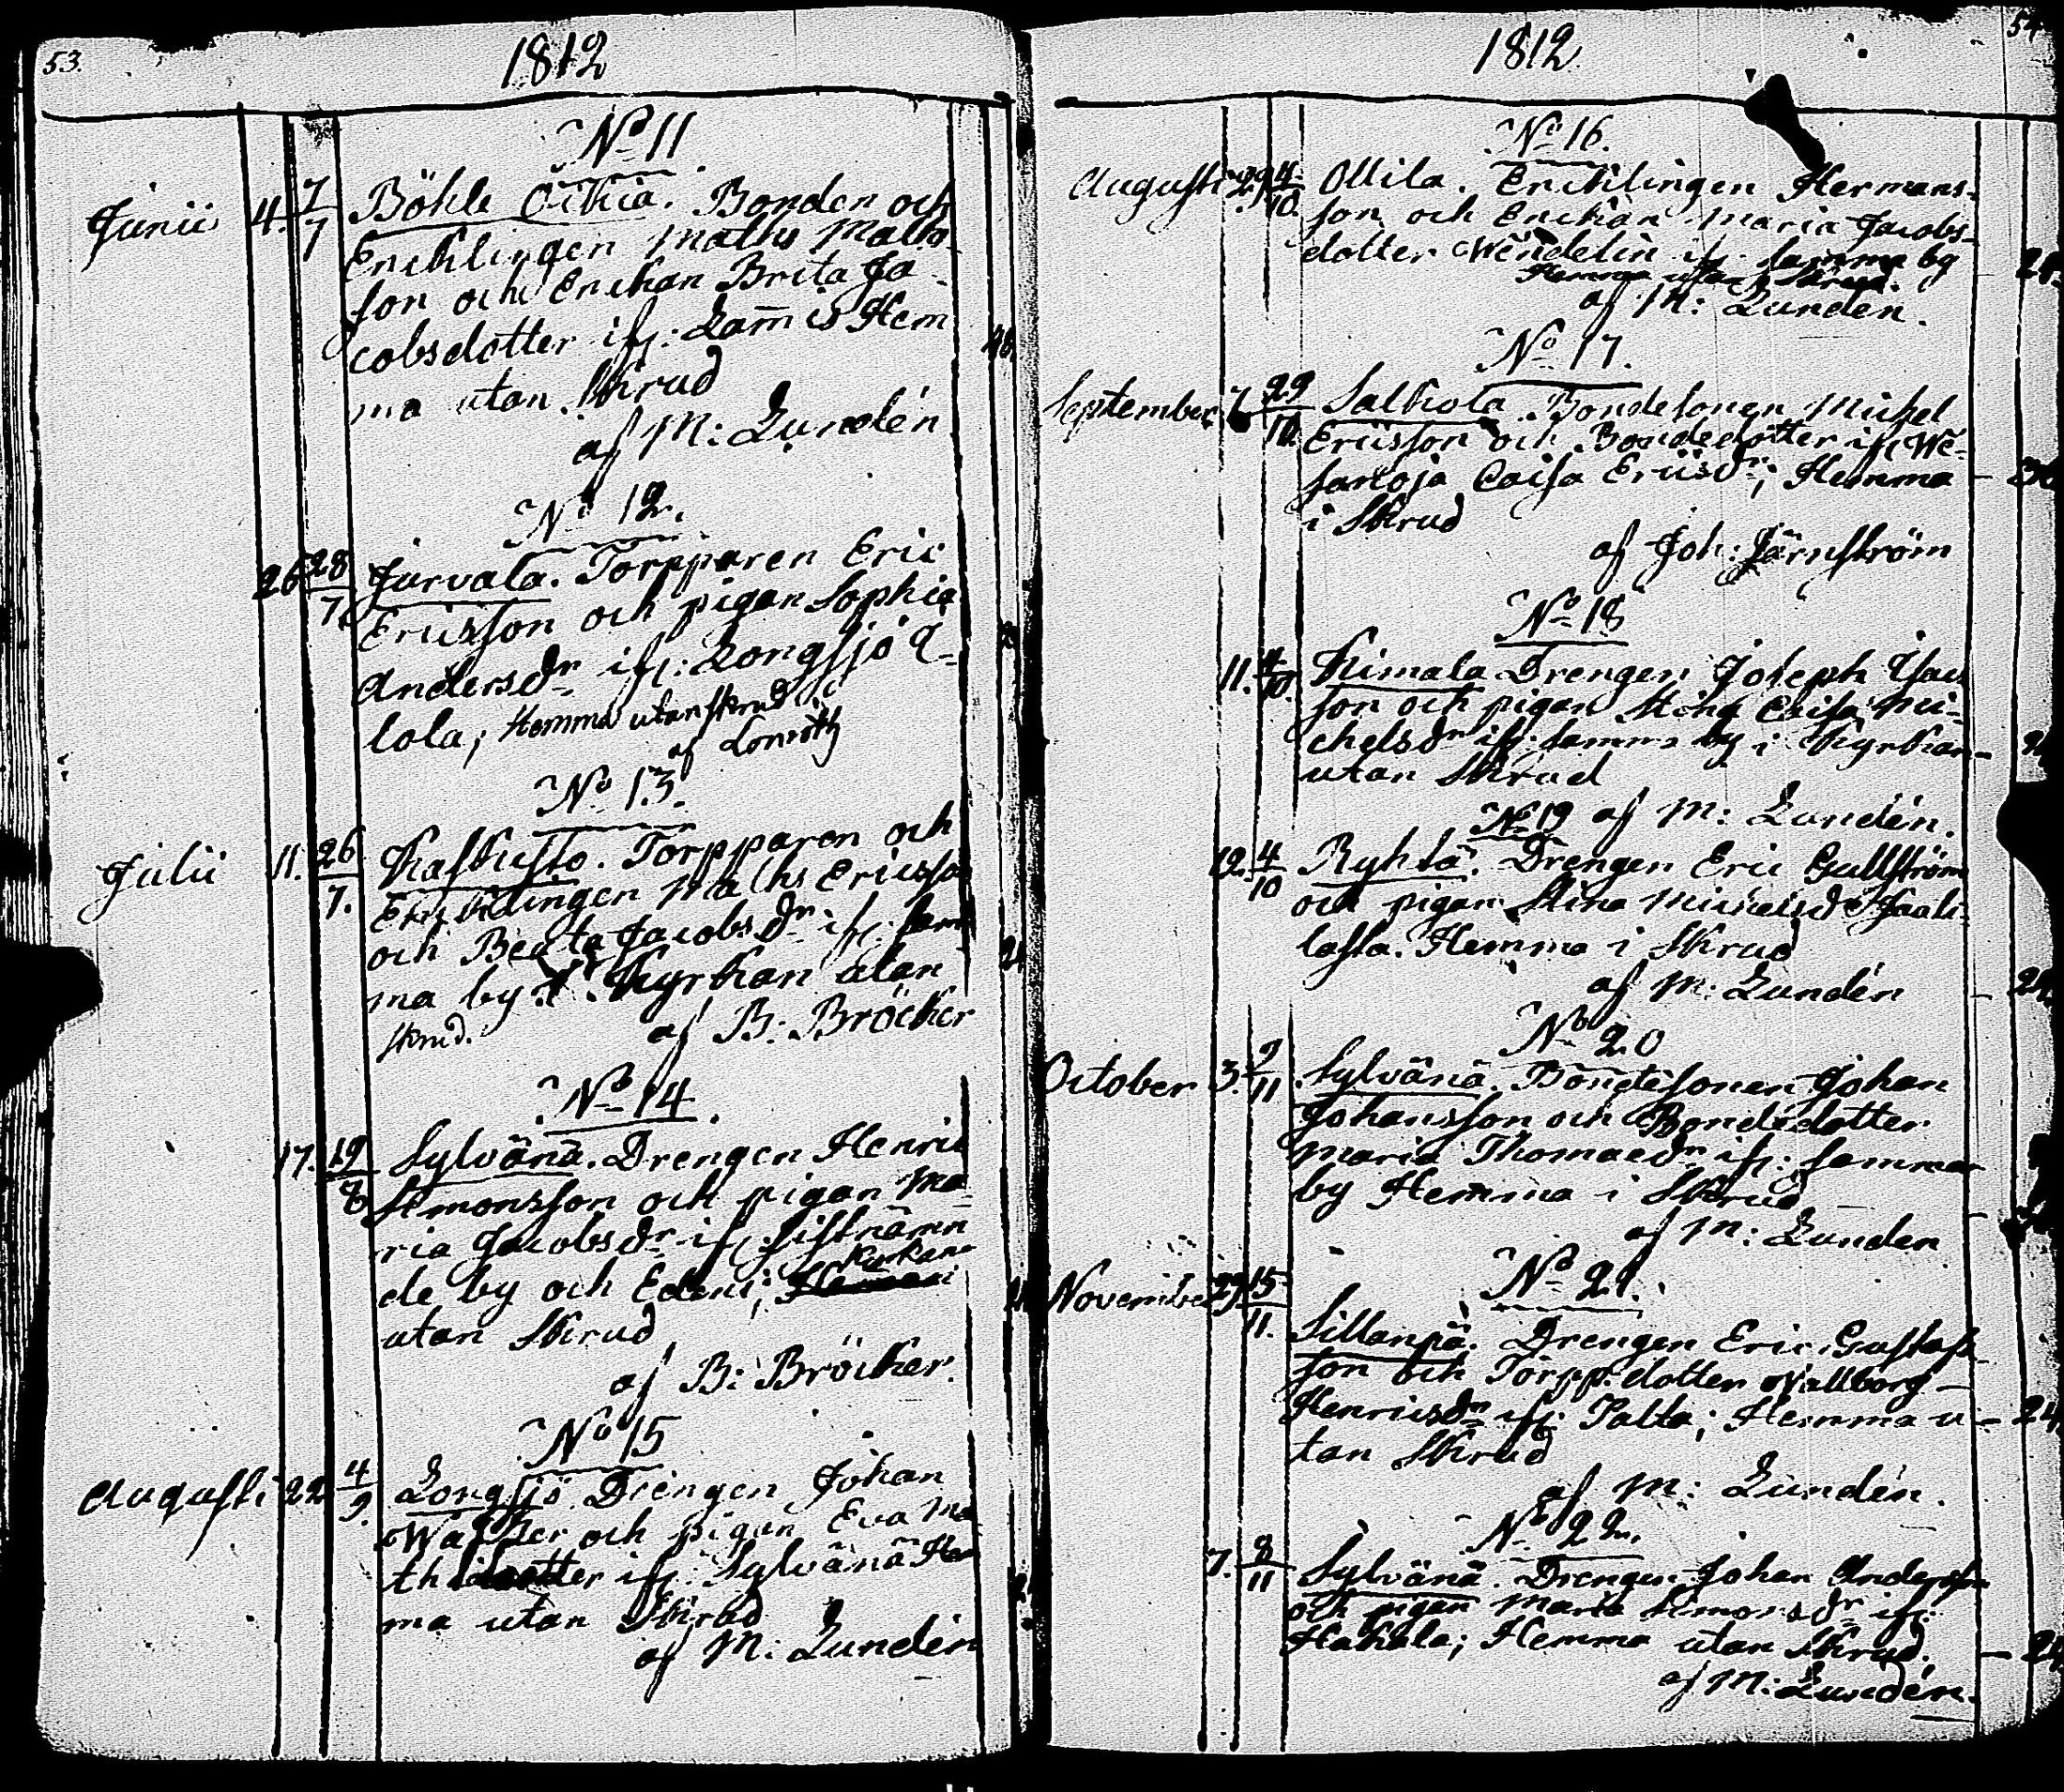 53.
1812
No 11
Junii 4. 7/7 Böhle Bonden och
Enchlingen Maths Maths
son och Enchan Brita Ja
cobsdotter ifr: Lammis Hem
ma utan Skrud
af M: Lundén
No 12.
26 28/7 Jurvala. Torpparen Eric
Ericsson och pigan Sophia
Andersdr ifr: Longsjö
lola; Hemma utan skrud
af Lonroth
No 13.
Julii 11. 26/7. Torpparen och
Enchlingen Maths Ericsson
och Beata Jacobsdr ifr: sam
ma by i Kyrkan utan
skrud. af B: Bröcker
No 14.
17. 19/8 Sylvänä. Drengen Henric
Simonsson och pigan Ma
ria Jacobsdr ifr: sistnämn
de by och Edeni; Kyrkan
utan Skrud
af B: Bröcker.
No 15
Augusti 22 4/9. Longsjö Drengen Johan
och pigan Eva Ma
ifr: Sylvänä Hem
ma utan Skrud
af M: Lundén
54
1812
No 16.
Augusti 29 4/10. Ollila. Enchlingen Hermans-
son och Enchan Maria Jacobs-
dotter Wendelin ifr: samma by
Hemma utan Skrud.
af M: Lundén.
24
No 17.
September 7 29/10. Salkola Bondesonen Michel
Ericsson och Bondedotter ifr We-
Caisa Ericsdr; Hemma
i Skrud
af Joh: Järnström
No 18
11. 4/10. Kimala Drengen Joseph Isacs
son och pigan Stina Caisa Mi-
chelsdr ifr: samma by i Kyrkan
utan Skrud
No 19 af M: Lundén.
12. 4/10 Ryhtä. Drengen Eric Gullström
och pigan Stina Michelsd Jaali-
lasta. Hemma i Skrud
af M: Lundén
24
No 20
October 3. 9/11 Sylvänä. Bondesonen Johan
Johansson och Bondedotter
Maria Thomaedr ifr: samma
by Hemma i Skrud
af M: Lunden
No 21.
November 15/11. Sillanpä. Drengen Eric Gustafs-
son och Torppdotter Wallborg
Henricsdr ifr: Palta; Hemma u- 24
tan Skrud
af M: Lundén.
No 22.
7. 8/11 Sylvänä. Drengen Johan Andersson
och pigan Maria Simonsdr ifr:
Hakala; Hemma utan Skrud. 24
af M: Lundén.